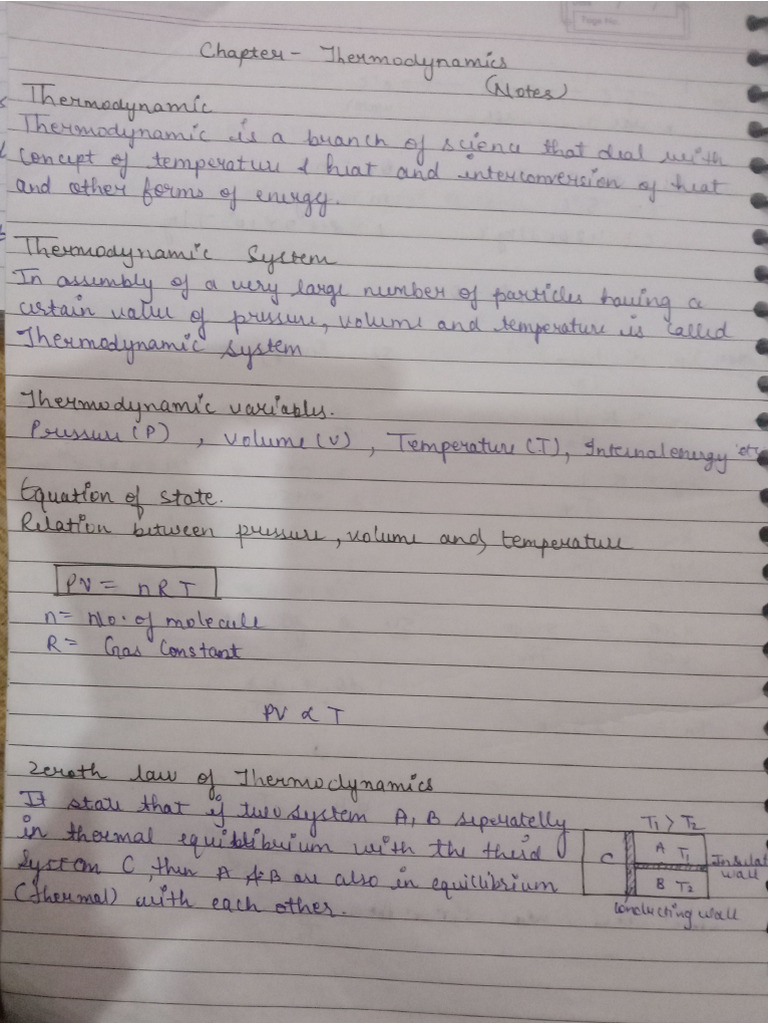 Page No.
Chapter - Thermodynamics
(Notes)
Thermodynamic
Thermodynamic is a branch of science that deal with
concept of temperature & heat and interconversion of heat
and other forms of energy.
Thermodynamic System
In assembly of a very large number of particles having a
certain value of pressure, volume and temperature is called
Thermodynamic system
Thermodynamic variables.
Pressure (P) , Volume (V) , Temperature (T), Internal energy etc
Equation of state.
Relation between pressure, volume and temperature
PV = nRT
n = No. of molecule
R = Gas Constant
PV ∝ T
Zeroth law of Thermodynamics
It state that if two system A, B seperatelly
in thermal equiblibrium with the theid
system C, then A & B are also in equilibrium
(thermal) with each other.
T1 > T2
C
A T1
B T2
Insulat
wall
conducting wall